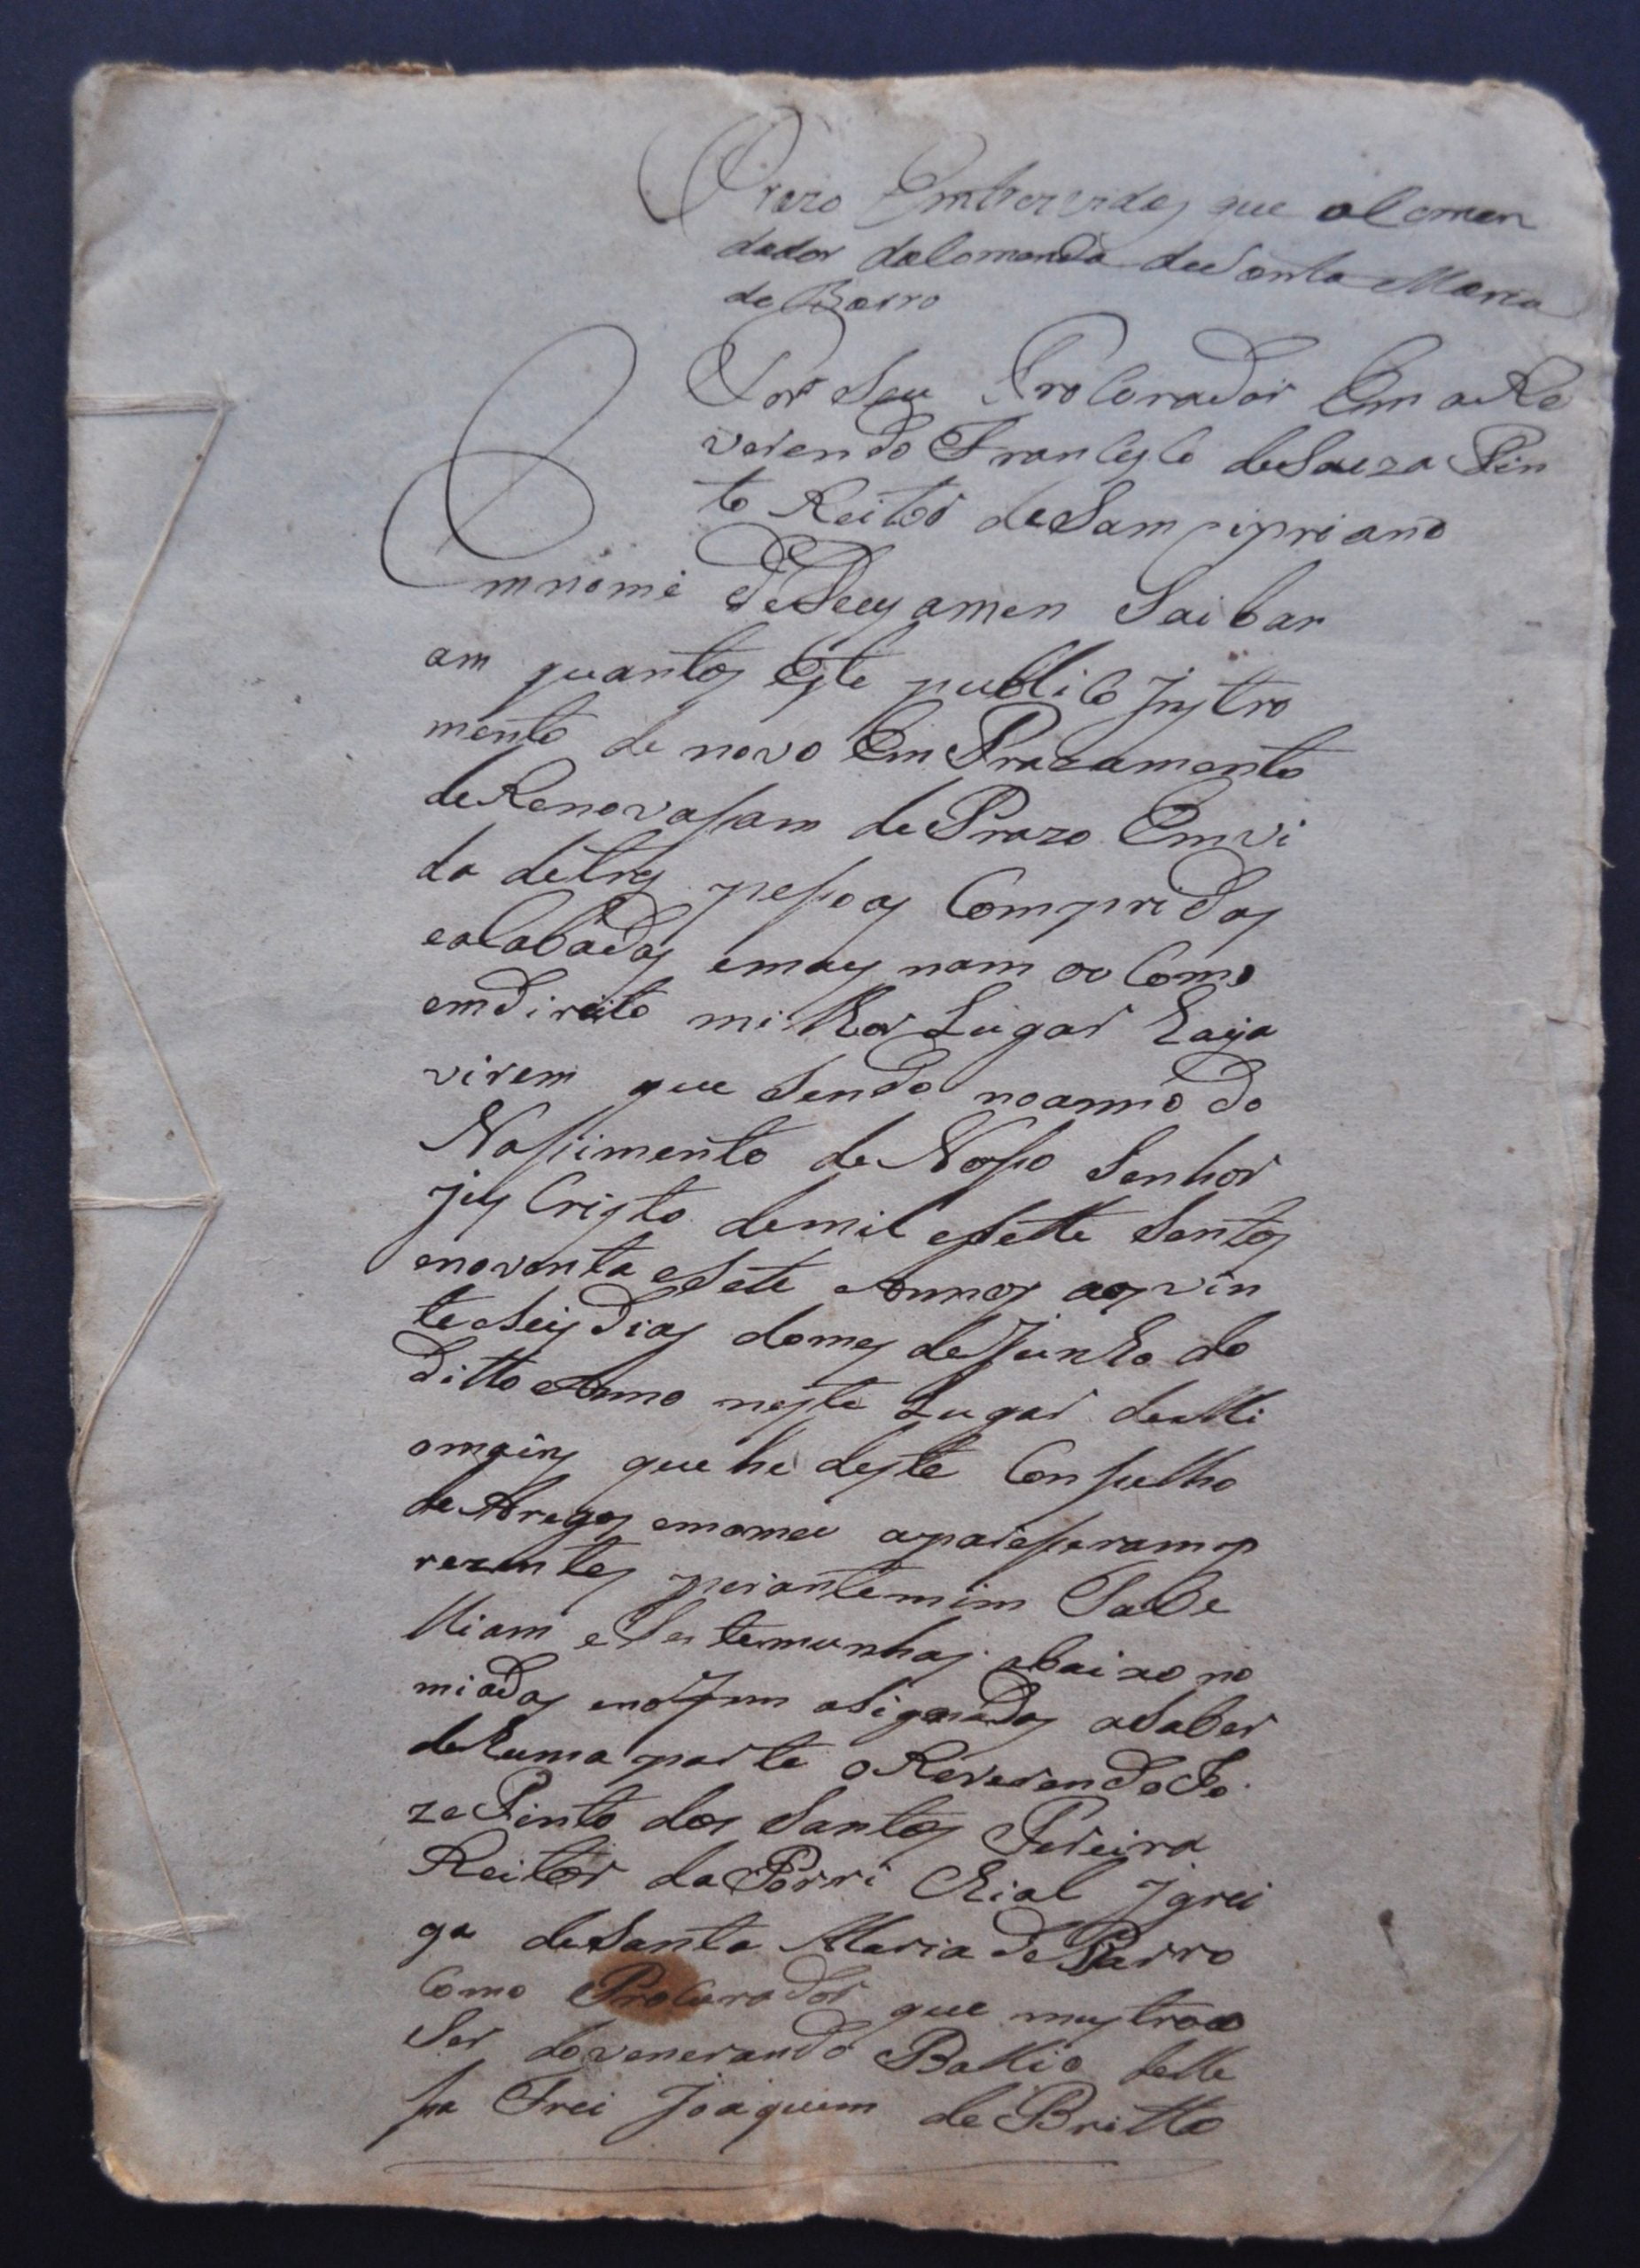 Prazo Em trez vidas que o Comen
dador da Comenda de Santa Maria
de Barro
Por Seu Procurador Em o Re
verendo Francisco de Souza Pin
to Reitor de Sam cipriano
Em nome de Deus amen Saibar
am quantos Este publico Jnstro
mento de novo Em Prazamento
de Renovassam de Prazo Em vi
da de tres pessoas Compridas
eacabadas emais nam ou Como
em direito milhor Lugar haja
virem que Sendo no anno do
Nassimento de Nosso Senhor
jezus Cristo de mil eSette Sentos
enoventa eSete Annos aos vin
te eSeis Dias do mes de Junho do
Ditto Anno neste Lugar de Mi
omains que he deste Conselho
de Aregos emomeu aparesseram p
rezentes perante mim Tabe
lliam eTestemunhas abaixo no
miadas eno fim aSignadas aSaber
dehuma parte o Reverendo Jo
ze Pinto dos Santos Pereira
Reitor da Parrichial Jgrei
ga de Santa Maria de Barro
Como Procurador que mustrou
Ser do venerando Ballio de Le
ssa Frei Joaquim de Britto